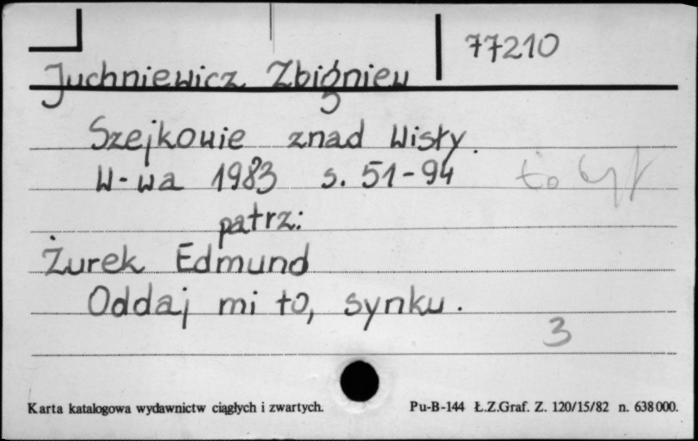 77210
Juchniewicz Zbigniew
Szejkowie znad Wisły.
W-wa 1983 s. 51-94
patrz:
Żurek Edmund
Oddaj mi to, synku.
3
Karta katalogowa wydawnictw ciągłych i zwartych. Pu-B-144 Ł.Z.Graf. Z. 120/15/82 n. 638000.